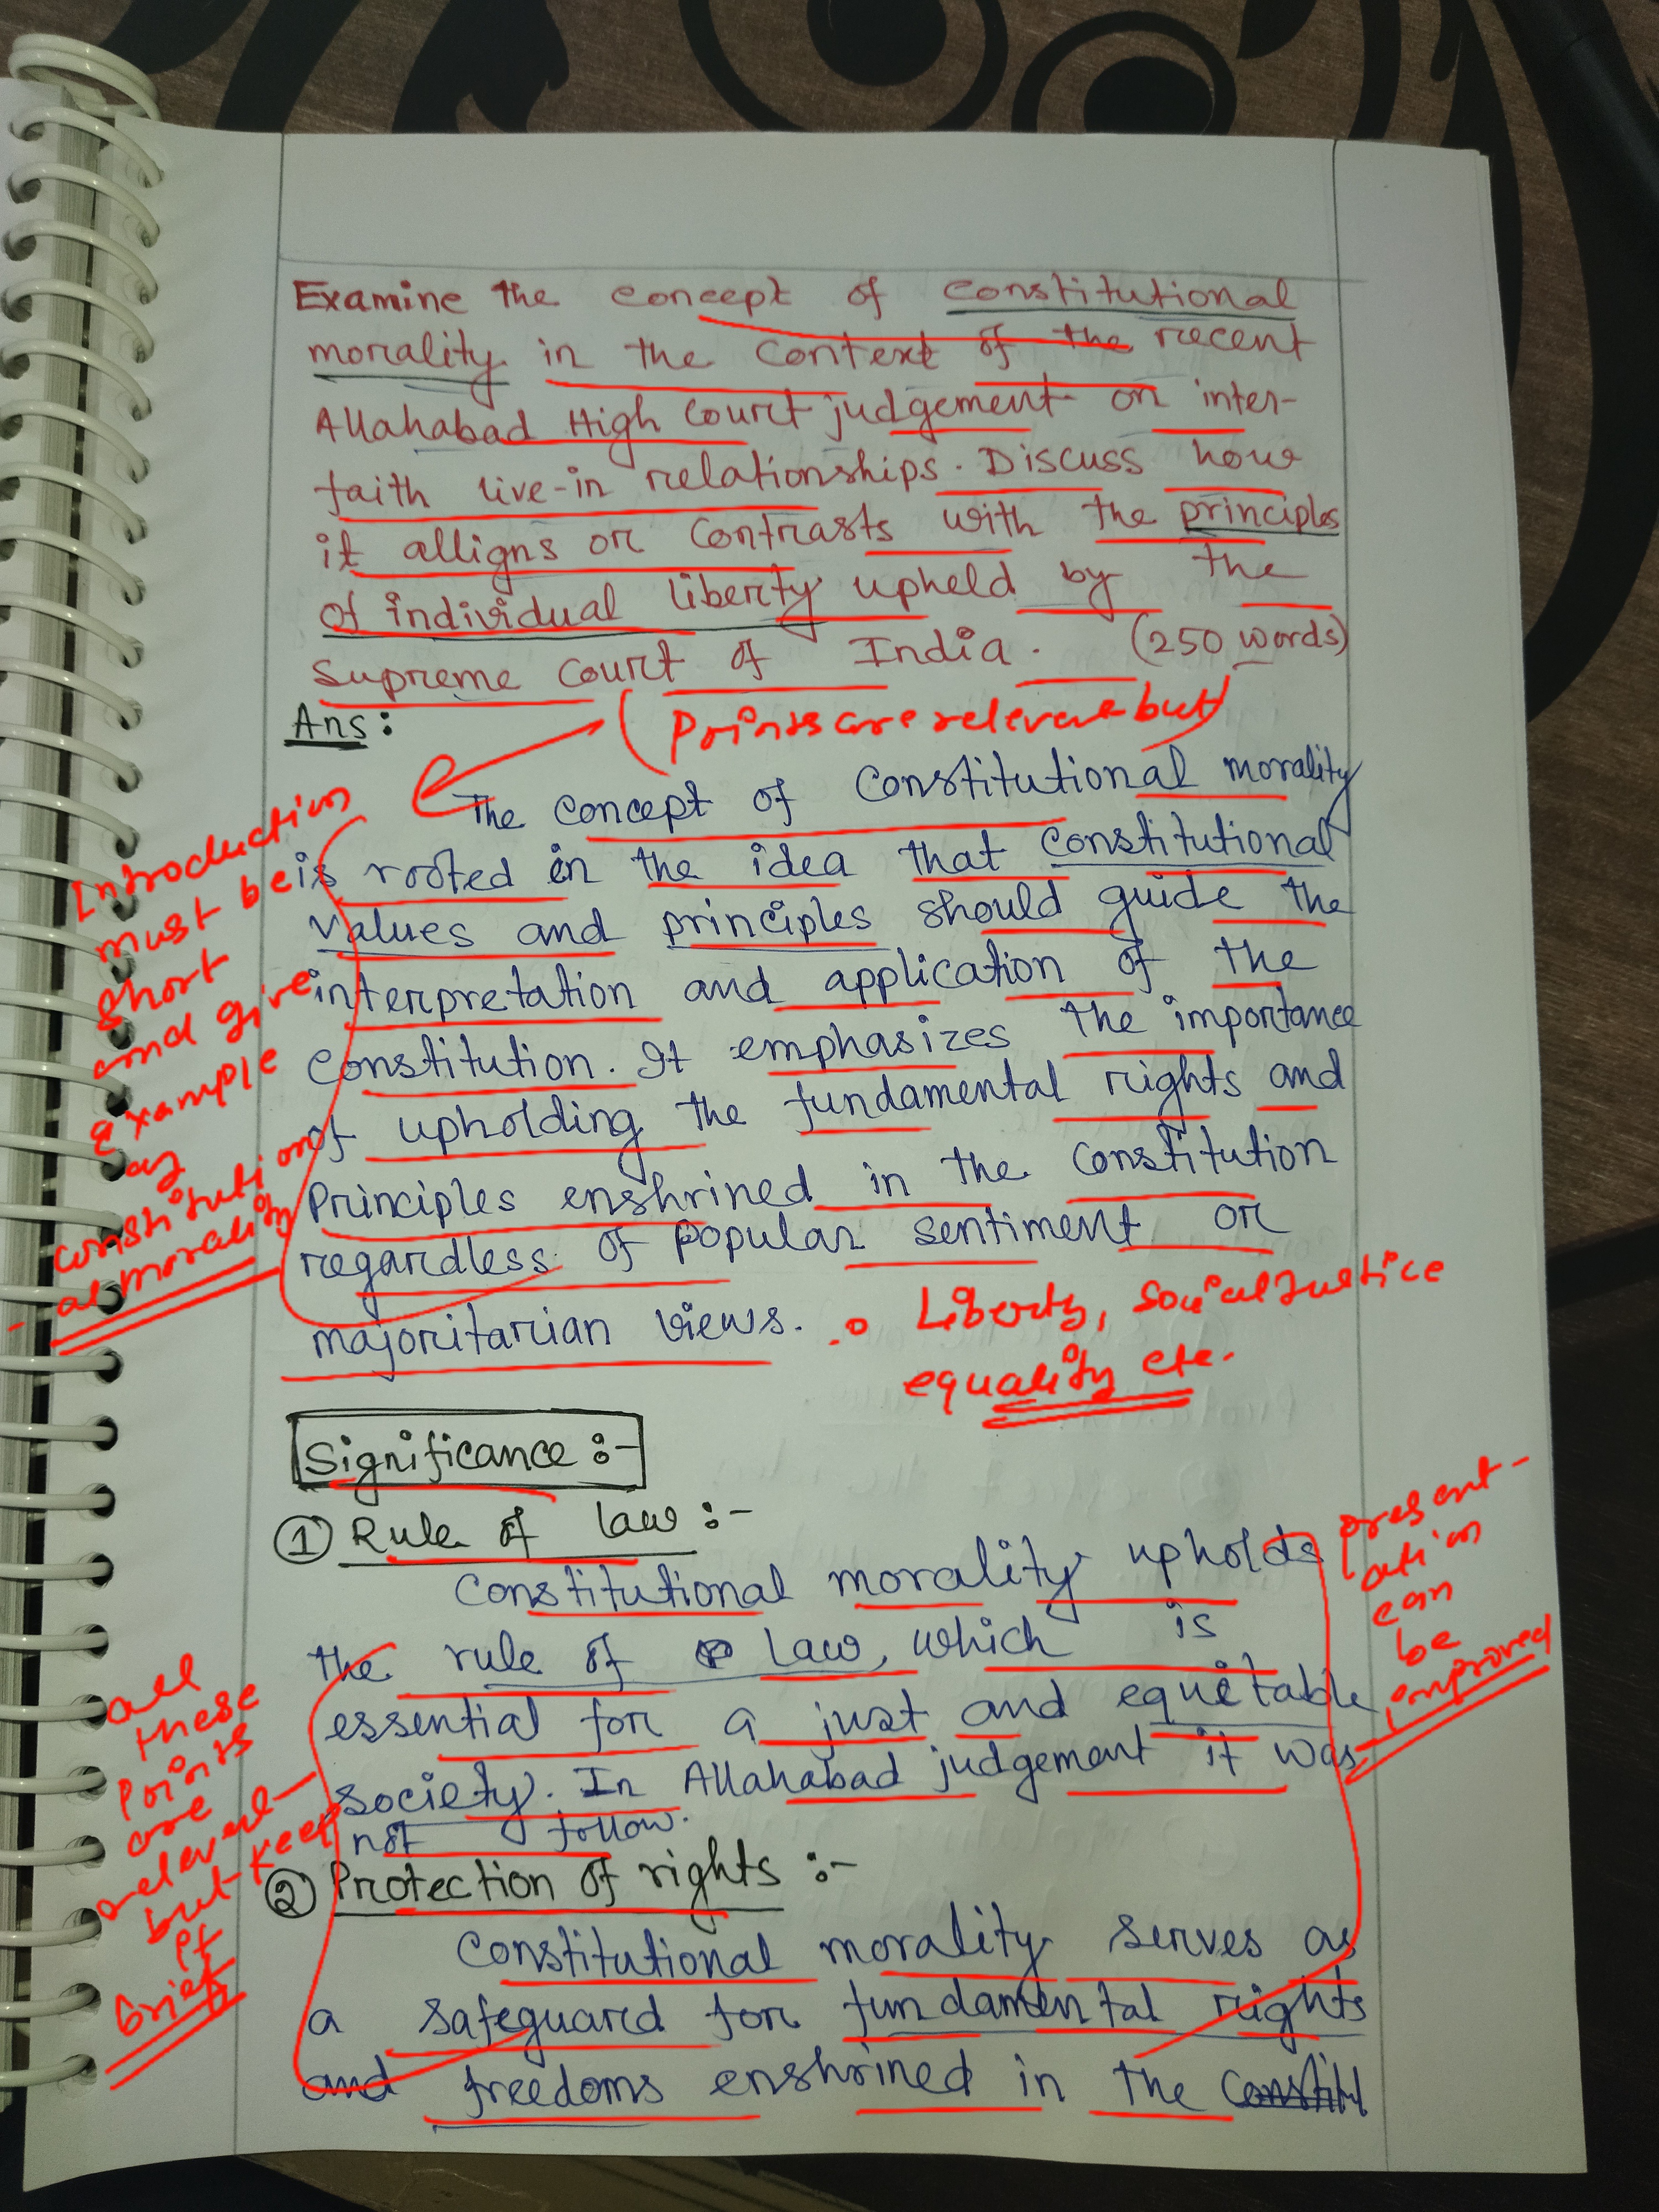 Examine the concept of constitutional
morality in the context of the recent
Allahabad High Court judgement on inter-
faith live-in relationships. Discuss how
it alligns or contrasts with the principles
of individual liberty upheld by the
Supreme Court of India. (250 words)
Ans:
Points are relevent but
The concept of constitutional morality
is rooted in the idea that constitutional
values and principles should guide the
interpretation and application of the
constitution. It emphasizes the importance
of upholding the fundamental rights and
principles enshrined in the constitution
regardless of popular sentiment or
majoritarian views.
Introduction
must be
short
and give
example
as
constitution
al morality
Liberty, social Justice
equality etc.
Significance :-
① Rule of law :-
Constitutional morality upholds
the rule of law, which is
essential for a just and equitable
society. In Allahabad judgement it was
not follow.
② Protection of rights :-
Constitutional morality serves as
a safeguard for fundamental rights
and freedoms enshrined in the
all
these
points
are
relevent
but keep
it
brief
present-
ation
can
be
improved